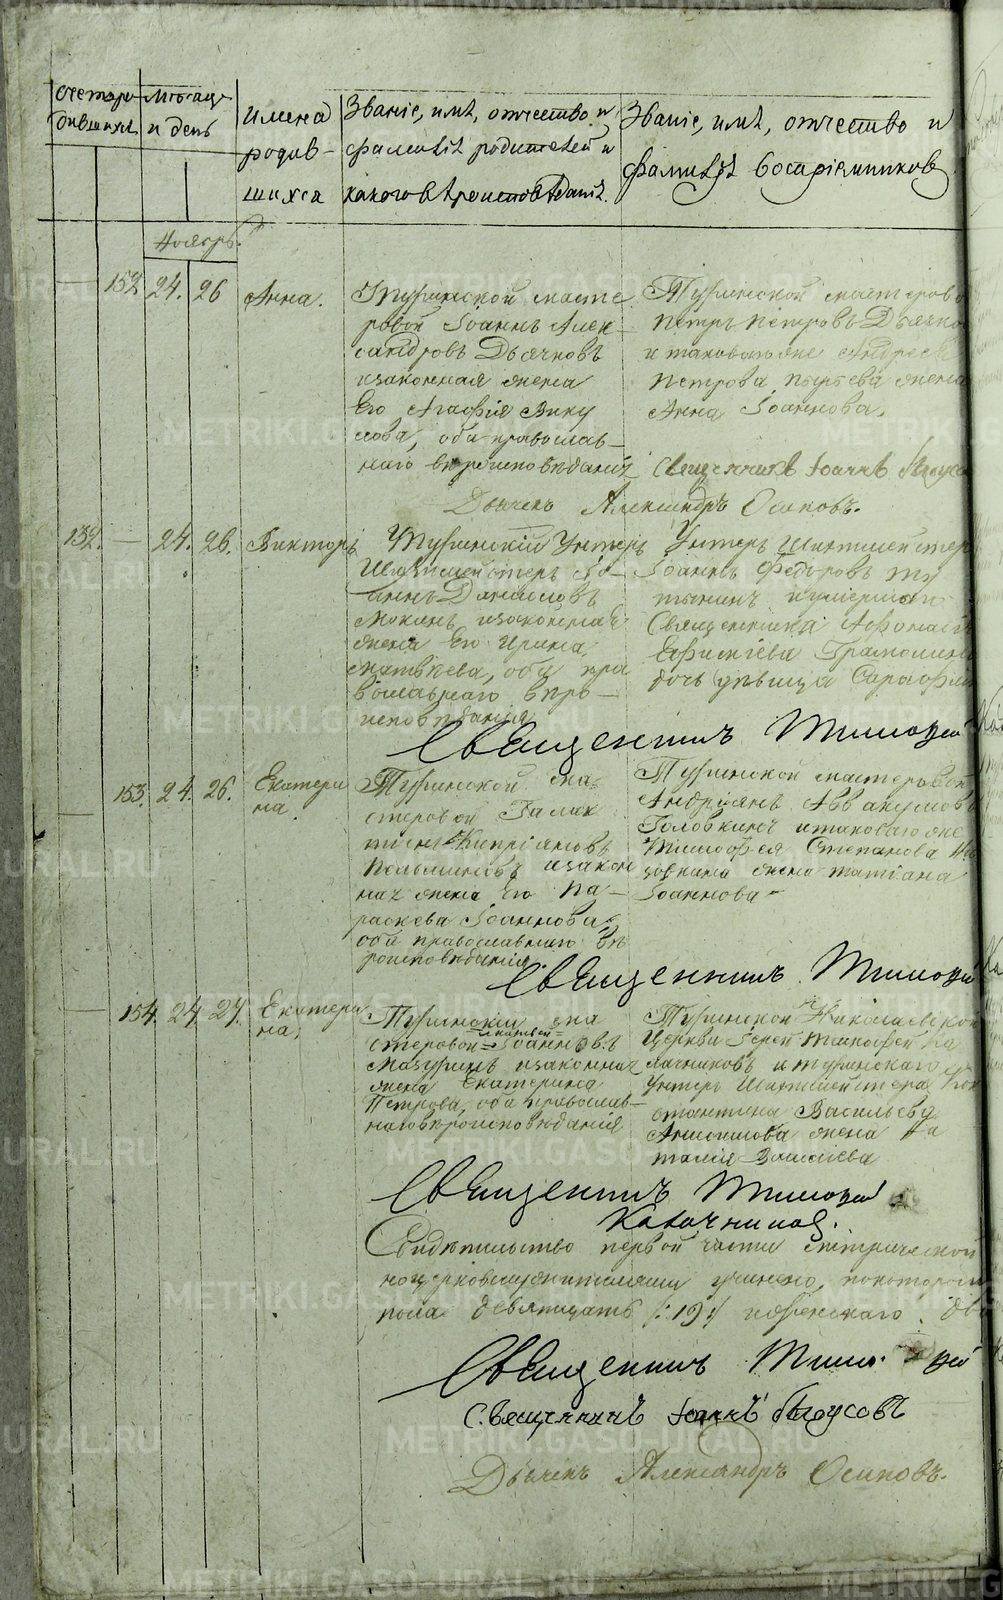 Счетъ ро-
дившихся
Мѣсяцъ
и день
имена
родив-
шихся
Званіе, имя, отчество и
фамилія родителей и
какого вѣроисповѣданія.
Званіе, имя, отчество и
фамилія воспріемниковъ
Ноябрь.
152 24. 26 Анна.
Туринской масте
ровой Іоаннъ Алек-
сандровъ Дьячковъ
изаконная жена
Его Агафія Вику
лова, оба православ-
наго вѣроисповѣданія
Туринской мастерово
Петръ Петровъ Дьячко
и таковагоже Андрея
Петрова жена
Анна Іоаннова.
Священникъ Іоаннъ
Дьячекъ Александръ Осиповъ.
132. — 24. 26. Викторъ
Туринскій Унтеръ
Шихтмейстеръ Іо-
аннъ Даниловъ
Мокинъ изаконная
жена Его Ирина
Матвѣева, оба пра
вославнаго вѣро-
исповѣданія
Унтеръ Шихтмейстеръ
Іоаннъ Федоровъ
и умершаго
Священника Афонасія
Ефиміева Грамолина
дочь дѣвица
Священникъ Тимофей
153. 24. 26. Екатери
на.
Туринской ма-
стеровой Галак
тіонъ Кипріяновъ
изакон
ная жена Его Па-
раскева Іоаннова,
оба православнаго вѣ
роисповѣданія
Туринской мастеровой
Андріянъ Аввакумовъ
Головкинъ итаковаго же
Тимофея Степанова
жена Татіана
Іоаннова
Священникъ Тимофей
154. 24 27. Екатери
на,
Туринскій ма
стеровой Іоанновъ
Мазуринъ изаконная
жена Екатерина
Петрова, оба православ-
наго вѣроисповѣданія
Туринской Николаевской
Церкви Іерей Тимофей Ка
лачниковъ и туринскаго
Унтеръ Шихтмейстера Кон
стантина Васильева
Анисимова жена На
талія
Священникъ Тимофей
Калачниковъ.
Свидѣтельство первой части метрической
учинено, покоторой
пола девятнадцать /:19:/ женскаго
Священникъ Тимофей
Священникъ Іоаннъ
Дьячекъ Александръ Осиповъ.
METRIKI.GASO-URAL.RU